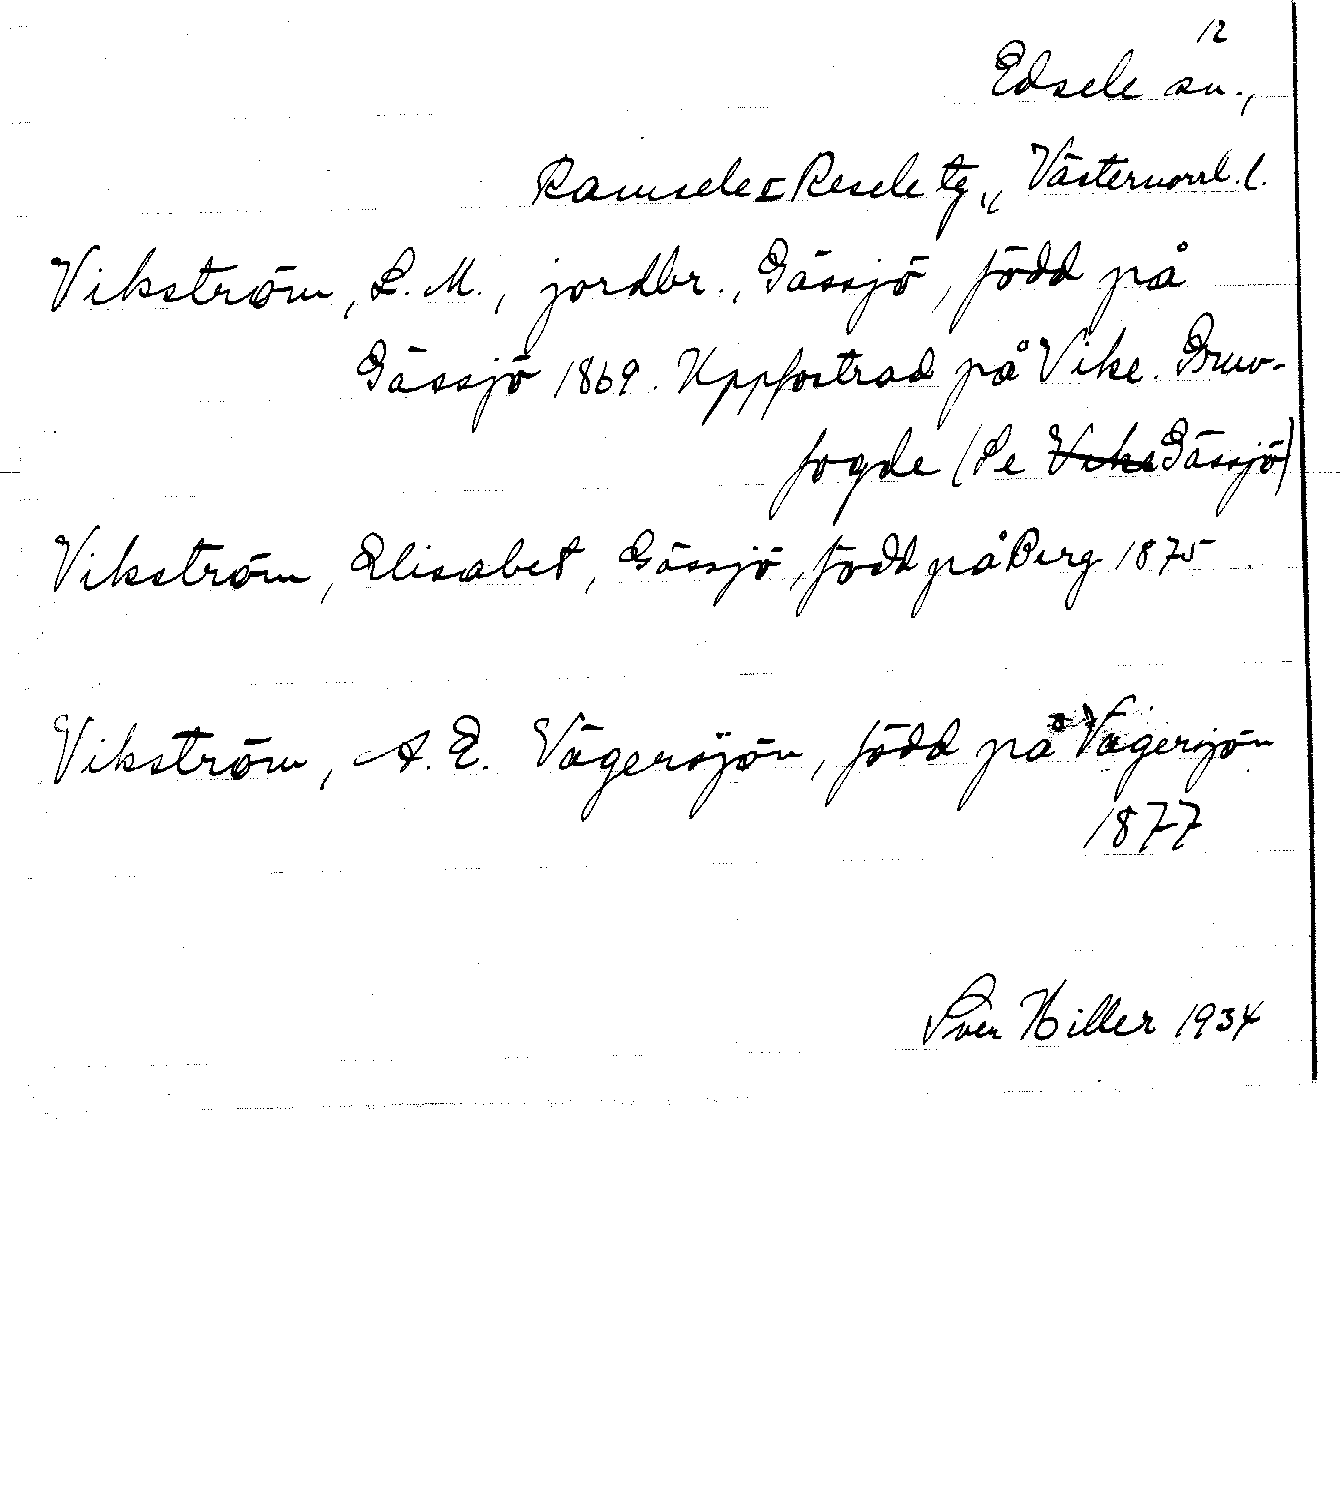 12
Edsele sn.,
Ramsele o Resele tg., Västernorrl. l.
Vikström, L. M., jordbr., Gässjö, född på
Gässjö 1869. Uppfostrad på Vike. Gruv-
fogde (Se Vike Gässjö)
Vikström, Elisabet, Gässjö, född på Berg 1875
Vikström, A. E. Vägersjön, född på Vägersjön
1877
Sven Hiller 1934